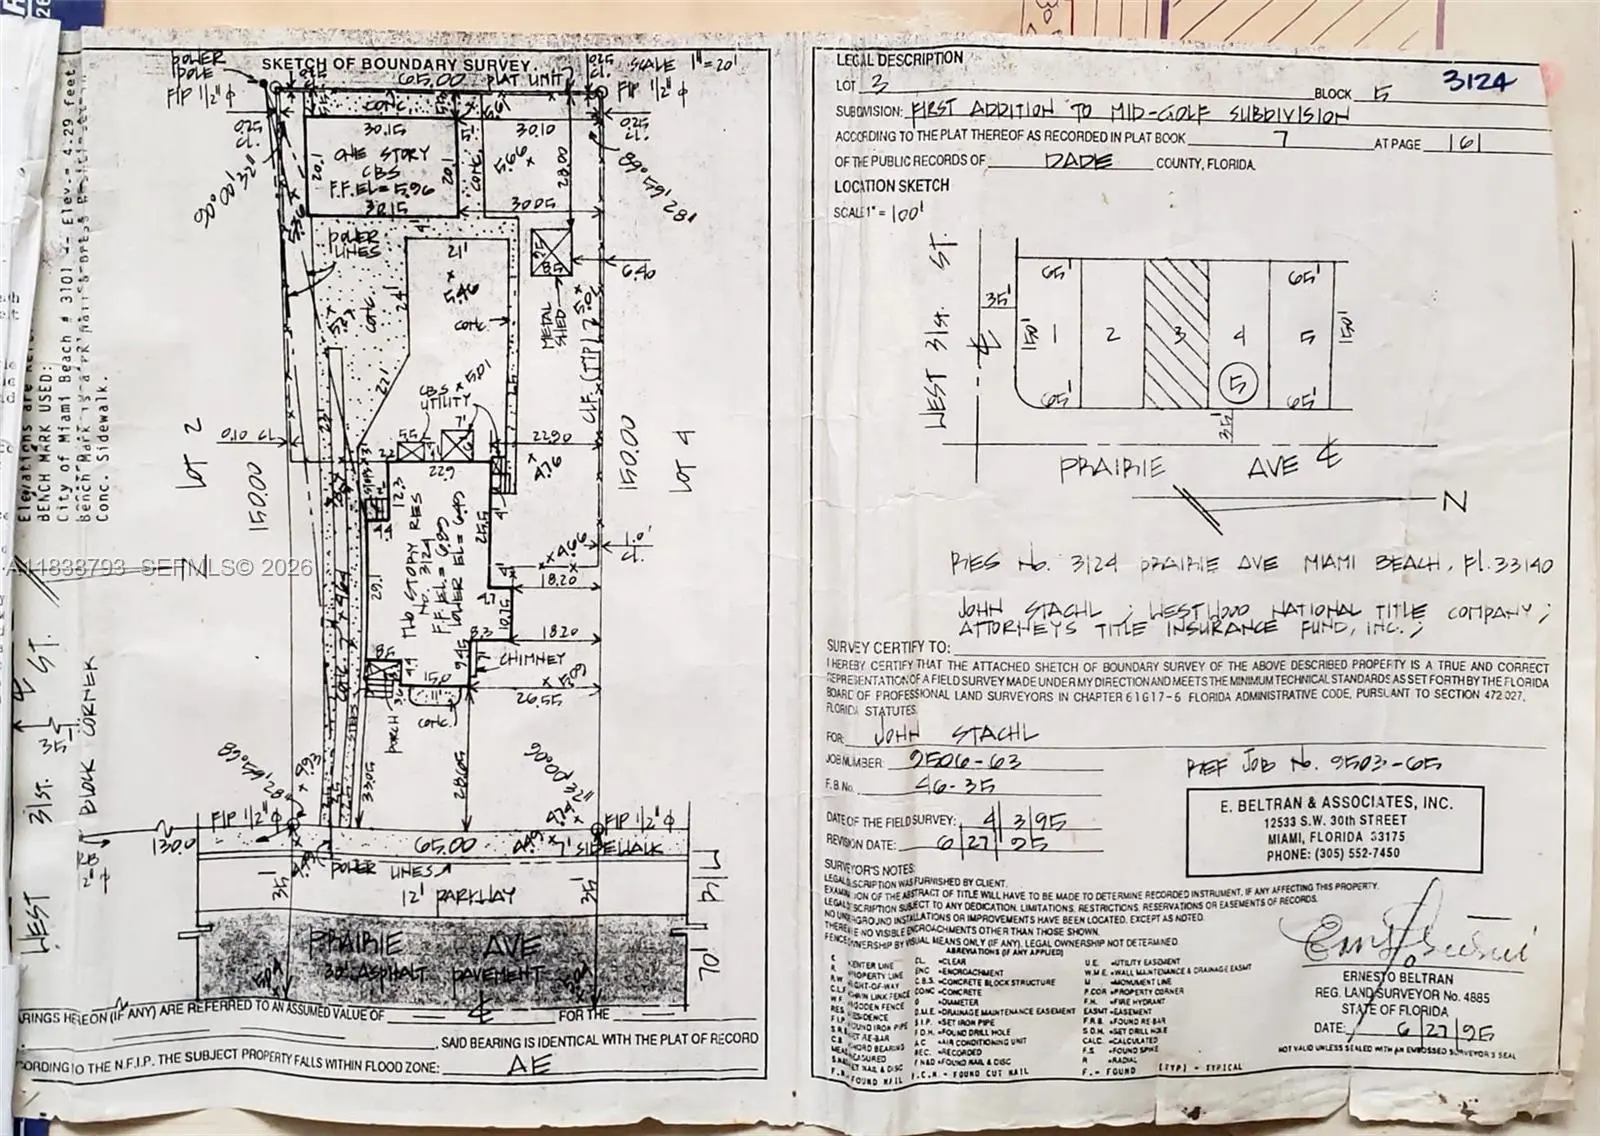 SKETCH OF BOUNDARY SURVEY.
SCALE 1"=20'
POWER POLE
65.00
PLAT LIMIT
FIP 1/2" Φ
FIP 1/2" Φ
0.25 CL.
0.25 CL.
CONC.
30.15
30.10
ONE STORY
CBS
F.F.EL= 5.96
20.1
20.1
30.15
CONC.
5.66
28.00
30.05
90°00'32"
89°59'28"
POWER LINES
21'
5.46
24'
CONC.
CONC.
22'
METAL SHED
6.40
CLF (TYP)
CBS UTILITY
5.01
LOT 2
150.00
0.10 CL.
22.90
4.76
150.00
LOT 4
22.9
12.3
TWO STORY RES
No. 3124
25.5
1.0' CL.
18.20
29.1
10.75
18.20
CHIMNEY
9.45
15.0
26.55
PORCH
CONC.
33.05
28.65
89°59'28"
90°00'32"
FIP 1/2" Φ
FIP 1/2" Φ
130.0
65.00
7' SIDEWALK
POWER LINES
12' PARKWAY
35'
35'
70'
PRAIRIE AVE
30' ASPHALT PAVEMENT
WEST 31st. ST.
BLOCK CORNER
BENCH MARK USED:
City of Miami Beach # 3101 -- Elev.= 4.29 feet
Conc. Sidewalk.
A11838793 SEFMLS© 2026
HEREON (IF ANY) ARE REFERRED TO AN ASSUMED VALUE OF
FOR THE
, SAID BEARING IS IDENTICAL WITH THE PLAT OF RECORD
TO THE N.F.I.P. THE SUBJECT PROPERTY FALLS WITHIN FLOOD ZONE: AE
LEGAL DESCRIPTION
3124
LOT 3 BLOCK 5
SUBDIVISION: FIRST ADDITION TO MID-GOLF SUBDIVISION
ACCORDING TO THE PLAT THEREOF AS RECORDED IN PLAT BOOK 7 AT PAGE 161
OF THE PUBLIC RECORDS OF DADE COUNTY, FLORIDA.
LOCATION SKETCH
SCALE 1" = 100'
WEST 31st. ST.
65' 65'
35'
150' 1 2 3 4 5 150'
5
65' 65'
35'
PRAIRIE AVE
N
RES No. 3124 PRAIRIE AVE MIAMI BEACH, Fl. 33140
JOHN STACHL ; WESTWOOD NATIONAL TITLE COMPANY ;
ATTORNEYS TITLE INSURANCE FUND, INC. ;
SURVEY CERTIFY TO:
I HEREBY CERTIFY THAT THE ATTACHED SKETCH OF BOUNDARY SURVEY OF THE ABOVE DESCRIBED PROPERTY IS A TRUE AND CORRECT
REPRESENTATION OF A FIELD SURVEY MADE UNDER MY DIRECTION AND MEETS THE MINIMUM TECHNICAL STANDARDS AS SET FORTH BY THE FLORIDA
BOARD OF PROFESSIONAL LAND SURVEYORS IN CHAPTER 61G17-6 FLORIDA ADMINISTRATIVE CODE, PURSUANT TO SECTION 472.027,
FLORIDA STATUTES.
FOR: JOHN STACHL
JOB NUMBER: 9506-63
REF JOB No. 9503-65
F.B.No. 46-35
DATE OF THE FIELD SURVEY: 4/3/95
REVISION DATE: 6/27/95
E. BELTRAN & ASSOCIATES, INC.
12533 S.W. 30th STREET
MIAMI, FLORIDA 33175
PHONE: (305) 552-7450
SURVEYOR'S NOTES:
LEGAL DESCRIPTION WAS FURNISHED BY CLIENT.
EXAMINATION OF THE ABSTRACT OF TITLE WILL HAVE TO BE MADE TO DETERMINE RECORDED INSTRUMENT, IF ANY AFFECTING THIS PROPERTY.
LEGAL DESCRIPTION SUBJECT TO ANY DEDICATION, LIMITATIONS, RESTRICTIONS, RESERVATIONS OR EASEMENTS OF RECORDS.
NO UNDERGROUND INSTALLATIONS OR IMPROVEMENTS HAVE BEEN LOCATED, EXCEPT AS NOTED.
THERE ARE NO VISIBLE ENCROACHMENTS OTHER THAN THOSE SHOWN.
FENCE OWNERSHIP BY VISUAL MEANS ONLY (IF ANY). LEGAL OWNERSHIP NOT DETERMINED.
ABREVIATIONS (IF ANY APPLIED)
CL. =CLEAR
ENC =ENCROACHMENT
C.B.S. =CONCRETE BLOCK STRUCTURE
CONC =CONCRETE
D =DIAMETER
D.M.E. =DRAINAGE MAINTENANCE EASEMENT
S.I.P. =SET IRON PIPE
F.D.H. =FOUND DRILL HOLE
AC =AIR CONDITIONING UNIT
REC. =RECORDED
F N&D =FOUND NAIL & DISC
F.C.N - FOUND CUT NAIL
F.N =FOUND NAIL
U.E. =UTILITY EASEMENT
W.M.E. =WALL MAINTENANCE & DRAINAGE EASMT
M =MONUMENT LINE
P.COR =PROPERTY CORNER
F.H. =FIRE HYDRANT
EASMT =EASEMENT
F.R.B =FOUND RE-BAR
S.D.H. =SET DRILL HOLE
CALC. =CALCULATED
F.S =FOUND SPIKE
R =RADIAL
F. - FOUND
(TYP) - TYPICAL
ERNESTO BELTRAN
REG. LAND SURVEYOR No. 4885
STATE OF FLORIDA
DATE: 6/27/95
NOT VALID UNLESS SEALED WITH AN EMBOSSED SURVEYOR'S SEAL